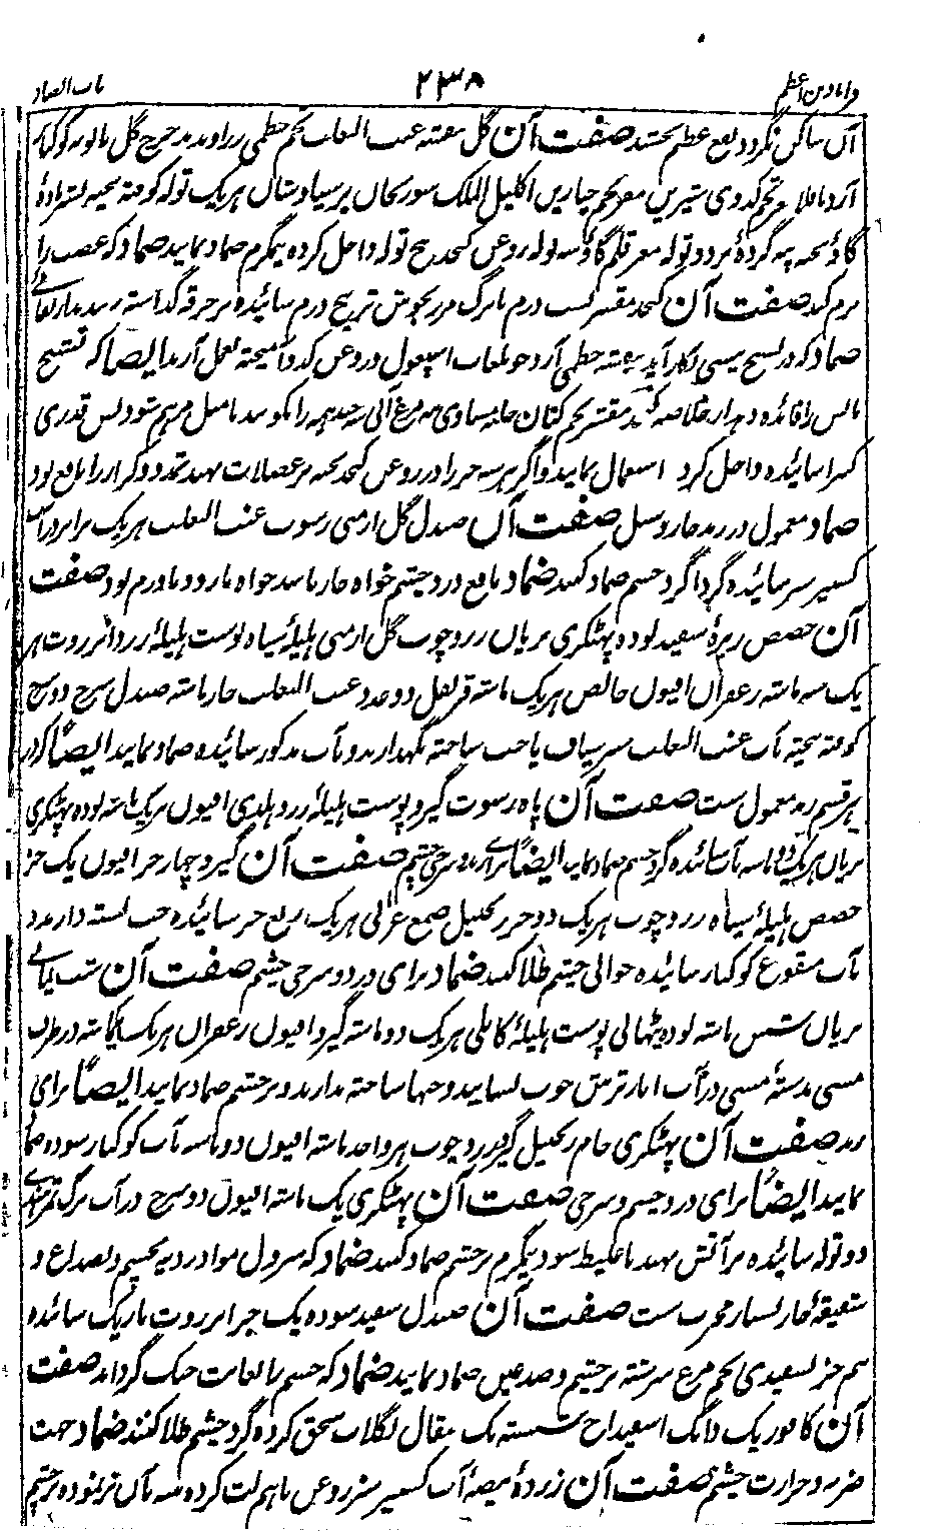 باب الصاد ۲۳۸ اعظم
آن ساکن نگردد نفع عظیم بخشد صفت آن گل بنفشه عنب الثعلب تخم خطمی زراوند مدحرج گل بابونه
آرد باقلا تخم کدوی شیرین مغز تخم خیارین اکلیل الملک سورنجان پرسیاوشان هر یک توله کوفته بیخته
گاؤ پخته پیه گردهٔ بز دو توله مغز قلم گاؤ سه توله روغن کنجد پنج توله داخل کرده نیمگرم ضماد نمایند ضماد که عصب را
نرم کند صفت آن کنجد مقشر بست درم با برگ مرزنجوش تر پنج درم سائیده بر خرقه گذاشته
ضماد که در تشنج یبسی بکار آید بنفشه خطمی آرد جو لعاب اسپغول در روغن کدو آمیخته بعمل آرند ایضا که تشنج
یابس را فائده دهد مقشر تخم کتان حلبه مساوی پیه مرغابی همه را بکوبند تا مثل مرهم شود پس قدری
کتیرا سائیده داخل کرده استعمال نمایند و اگر هر سه جز را در روغن کنجد پخته بر عضلات نهند تمدد و کزاز را نافع بود
ضماد معمول در رمد حار و سبل صفت آن صندل گل ارمنی رسوت عنب الثعلب هر یک برابر در آب
کشنیز سبز سائیده گرداگرد چشم ضماد کنند ضماد نافع درد چشم خواه حار باشد خواه بارد و با ورم بود صفت
آن حضض زیرهٔ سفید لوده پهٹکری بریان زردچوب گل ارمنی هلیلهٔ سیاه پوست هلیلهٔ زرد انزروت هر
یک سه ماشه زعفران افیون خالص هر یک ماشه قرنفل دو عدد عنب الثعلب چار ماشه صندل سرخ دو سرخ
کوفته بیخته بآب عنب الثعلب سبز شیاف یا حب ساخته نگهدارند و بآب مذکور سائیده ضماد نمایند ایضاً که در
هر قسم رمد معمول ست صفت آن رسوت گیرو پوست هلیلهٔ زرد هلدی افیون هر یک ماشه لوده پهٹکری
بریان هر یک دو ماشه بآب سائیده گرد چشم ضماد نمایند ایضاً برای درد و سرخی چشم صفت آن گیرو چهار جز افیون یک جز
حضض هلیلهٔ سیاه زردچوب هر یک دو جز زنجبیل صمغ عربی هر یک ربع جز سائیده حب بسته دارند و
بآب منقوع کوکنار سائیده حوالی چشم طلا کنند ضماد برای درد و سرخی چشم صفت آن شب یمانی
بریان شش ماشه لوده پٹهانی پوست هلیلهٔ کابلی هر یک دو ماشه گیرو افیون زعفران هر یک یکماشه در ظرف
مسی بدستهٔ مسی در آب انار ترش خوب بسایند و حبها ساخته بدارند و بر چشم ضماد نمایند ایضاً برای
رمد صفت آن پهٹکری خام زنجبیل گیرو زردچوب هر واحد ماشه افیون دو ماشه بآب کوکنار سوده ضماد
نمایند ایضاً برای درد چشم و سرخی صفت آن پهٹکری یک ماشه افیون دو سرخ در آب برگ تمرهندی
دو توله سائیده بر آتش نهند تا غلیظ شود نیمگرم بر چشم ضماد کنند ضماد که نزول مواد ردیه بچشم و صداع و
شقیقهٔ حار بسیار مجرب ست صفت آن صندل سفید سوده یک جز انزروت باریک سائده
نیم جز بسفیدی تخم مرغ سرشته بر چشم و صدغین ضماد نمایند ضماد که جسم را بغایت خنک گرداند صفت
آن کافور یک دانگ اسفیداج شسته یک مثقال بگلاب سحق کرده گرد چشم طلا کنند ضماد جهت
ضربه و حرارت چشم صفت آن زردهٔ بیضه آب کشنیز سبز روغن باهم لت کرده پنبه بآن تر نموده بر چشم